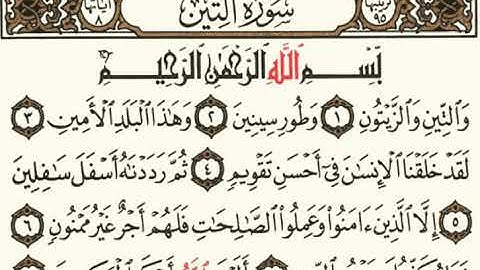 ترتيبها ٩٥ سورة التين آياتها ٨
بِسْمِ ٱللَّهِ ٱلرَّحْمَٰنِ ٱلرَّحِيمِ
وَٱلتِّينِ وَٱلزَّيْتُونِ ١ وَطُورِ سِينِينَ ٢ وَهَٰذَا ٱلْبَلَدِ ٱلْأَمِينِ ٣
لَقَدْ خَلَقْنَا ٱلْإِنسَٰنَ فِىٓ أَحْسَنِ تَقْوِيمٍ ٤ ثُمَّ رَدَدْنَٰهُ أَسْفَلَ سَٰفِلِينَ
٥ إِلَّا ٱلَّذِينَ ءَامَنُوا۟ وَعَمِلُوا۟ ٱلصَّٰلِحَٰتِ فَلَهُمْ أَجْرٌ غَيْرُ مَمْنُونٍ ٦